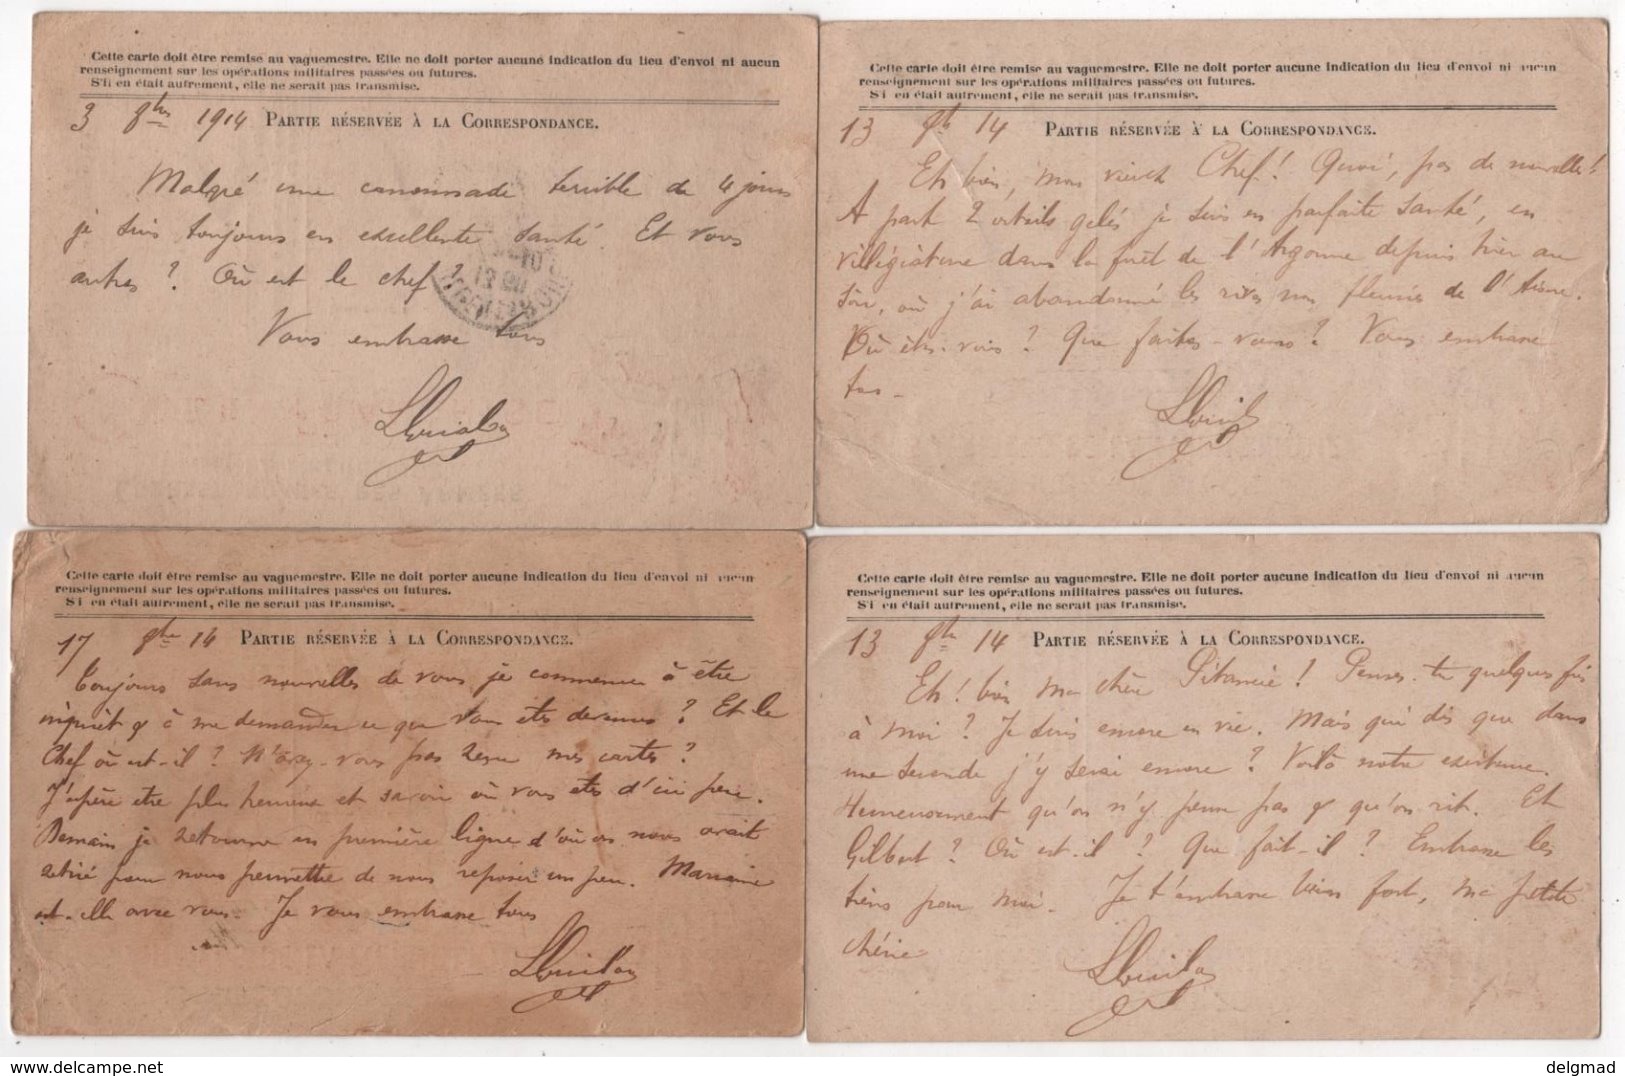 Cette carte doit être remise au vaguemestre. Elle ne doit porter aucune indication du lieu d'envoi ni aucun
renseignement sur les opérations militaires passées ou futures.
S'il en était autrement, elle ne serait pas transmise.
3 8bre 1914 PARTIE RÉSERVÉE À LA CORRESPONDANCE.
Malgré une canonnade terrible de 4 jours
je suis toujours en excellente santé. Et vous
autres ? Où est le chef ?
Vous embrasse tous
Cette carte doit être remise au vaguemestre. Elle ne doit porter aucune indication du lieu d'envoi ni aucun
renseignement sur les opérations militaires passées ou futures.
Si en était autrement, elle ne serait pas transmise.
13 8bre 14 PARTIE RÉSERVÉE À LA CORRESPONDANCE.
Eh bien, mon vieux Chef ! Quoi, pas de nouvelles !
A part 2 orteils gelés je suis en parfaite santé, en
villégiature dans la forêt de l'Argonne depuis hier au
soir, où j'ai abandonné les rives non fleuries de l'Aisne.
Où êtes-vous ? Que faites-vous ? Vous embrasse
tous -
Cette carte doit être remise au vaguemestre. Elle ne doit porter aucune indication du lieu d'envoi ni aucun
renseignement sur les opérations militaires passées ou futures.
Si en était autrement, elle ne serait pas transmise.
17 8bre 14 PARTIE RÉSERVÉE À LA CORRESPONDANCE.
Toujours sans nouvelles de vous je commence à être
inquiet & à me demander ce que vous êtes devenus ? Et le
Chef où est-il ? N'avez-vous pas reçu mes cartes ?
J'espère être plus heureux et savoir où vous êtes d'ici peu.
Demain je retourne en première ligne d'où on nous avait
retiré pour nous permettre de nous reposer un peu. Marraine
est-elle avec vous. Je vous embrasse tous
Cette carte doit être remise au vaguemestre. Elle ne doit porter aucune indication du lieu d'envoi ni aucun
renseignement sur les opérations militaires passées ou futures.
Si en était autrement, elle ne serait pas transmise.
13 8bre 14 PARTIE RÉSERVÉE À LA CORRESPONDANCE.
Eh ! bien ma chère ! Penses-tu quelques fois
à moi ? Je suis encore en vie. Mais qui dis que dans
une seconde j'y serai encore ? Voilà notre existence.
Heureusement qu'on n'y pense pas & qu'on rit. Et
Gilbert ? Où est-il ? Que fait-il ? Embrasse les
tiens pour moi. Je t'embrasse bien fort, ma petite
chérie
www.delcampe.net
delgmad